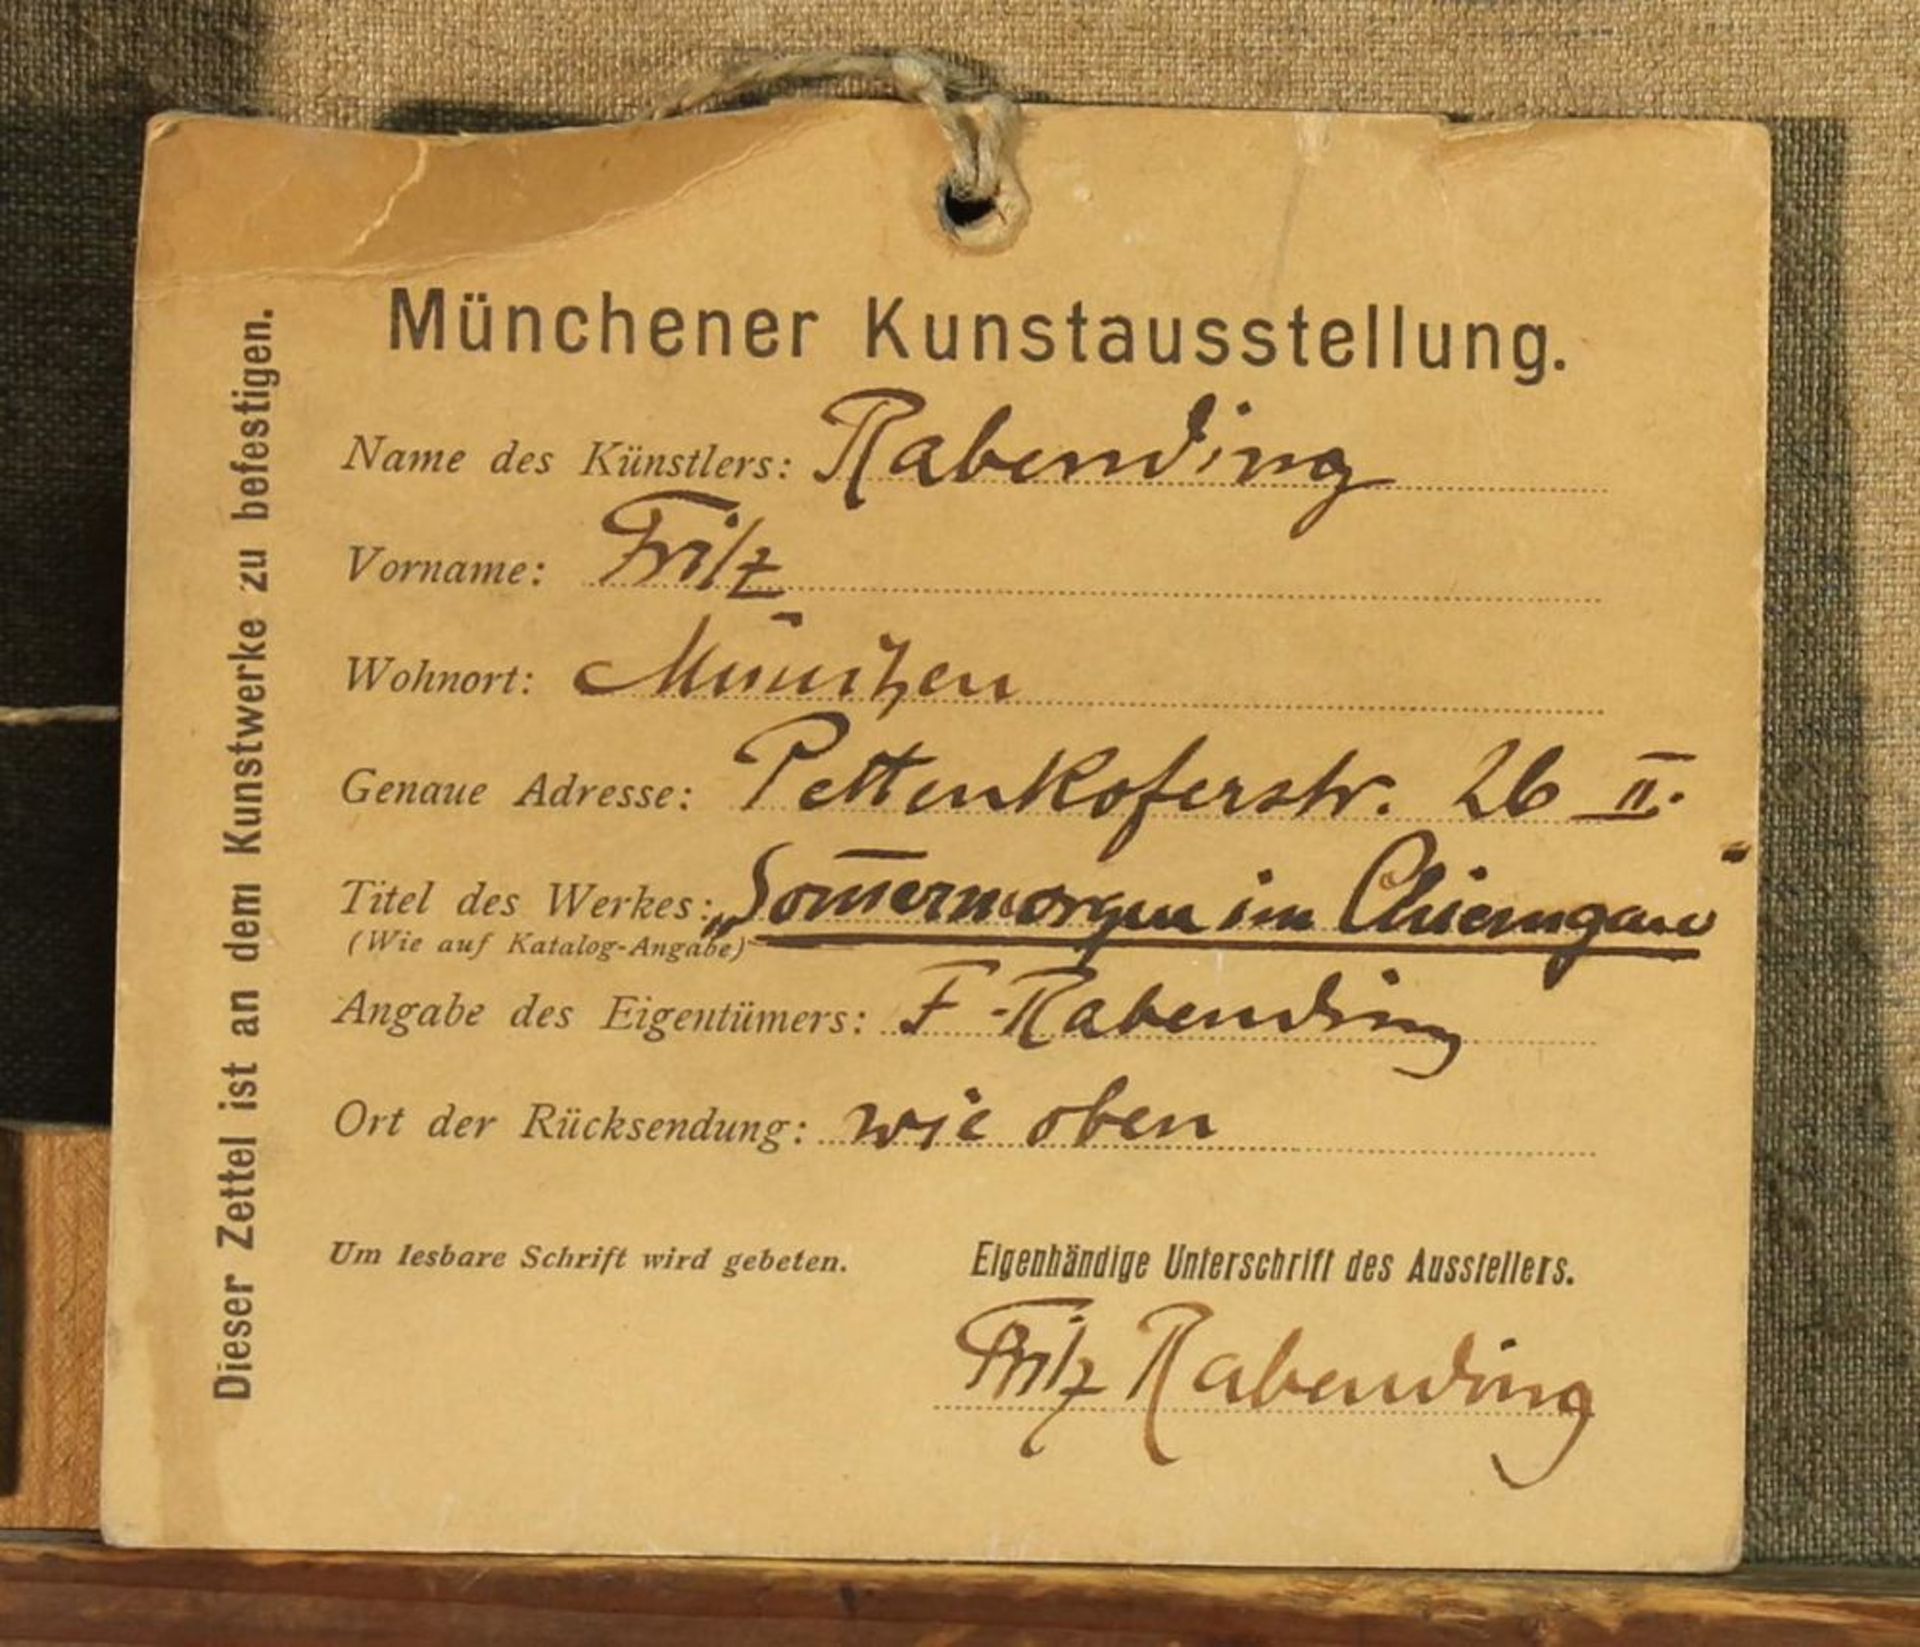 Münchener Kunstausstellung.
Name des Künstlers: Rabending
Vorname: Fritz
Wohnort: München
Genaue Adresse: Pettenkoferstr. 26 II.
Titel des Werkes: „Som̅ermorgen im Chiemgau"
(Wie auf Katalog-Angabe)
Angabe des Eigentümers: F. Rabending
Ort der Rücksendung: wie oben
Um lesbare Schrift wird gebeten.
Eigenhändige Unterschrift des Ausstellers.
Fritz Rabending
Dieser Zettel ist an dem Kunstwerke zu befestigen.